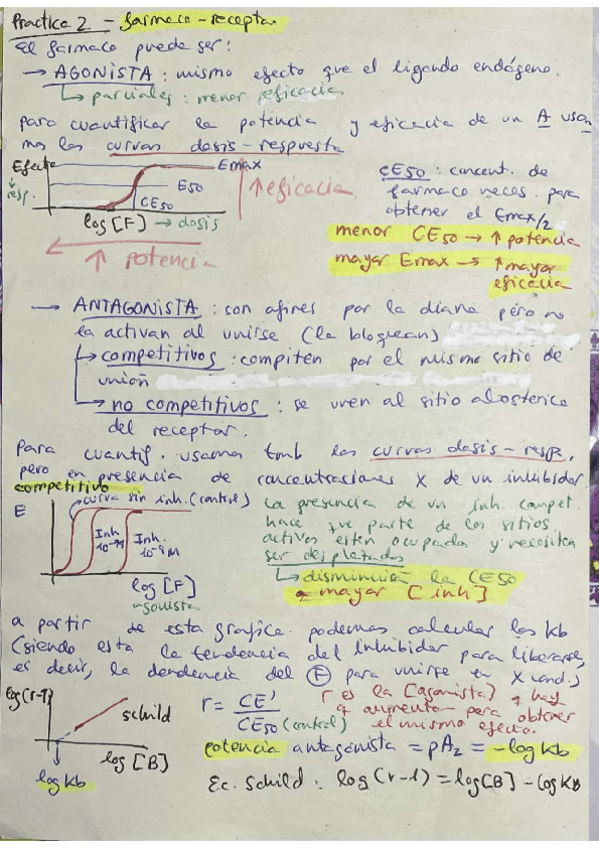 Practica 2 - farmaco-receptor
El farmaco puede ser:
→ AGONISTA: mismo efecto que el ligando endógeno.
↳ parciales: menor eficacia
para cuantificar la potencia y eficacia de un A usa
mos las curvas dosis-respuesta
Efecto
↓
resp.
Emax
E50
CE50
log [F] → dosis
↑ eficacia
↑ potencia
CE50: concent. de
farmaco neces. para
obtener el Emax/2
menor CE50 → ↑ potencia
mayar Emax → ↑ mayar
eficacia
→ ANTAGONISTA: son afines por la diana pero no
la activan al unirse (la bloquean)
↳ competitivos: compiten por el mismo sitio de
unión
↳ no competitivos: se unen al sitio alosterico
del receptor.
Para cuantif. usamos tmb las curvas dosis-resp,
pero en presencia de concentraciones X de un inhibidor
competitivo
curva sin inh. (control)
E
Inh
Inh.
log [F]
agonista
La presencia de un inh. compet.
hace que parte de los sitios
activos esten ocupados y necesiten
ser desplazados
↳ disminuirá la CE50
a mayar [inh]
a partir de esta grafica podemos calcular las Kb
(siendo esta la tendencia del inhibidor para liberarse,
es decir, la dendencia del F para unirse en X cond.)
log(r-1)
schild
log [B]
log Kb
r = CE'/CE50 (control)
r es la [agonista] q hay
q aumentar para obtener
el mismo efecto.
potencia antagonista = pA2 = -log Kb
Ec. Schild: log (r-1) = log[B] - log KB